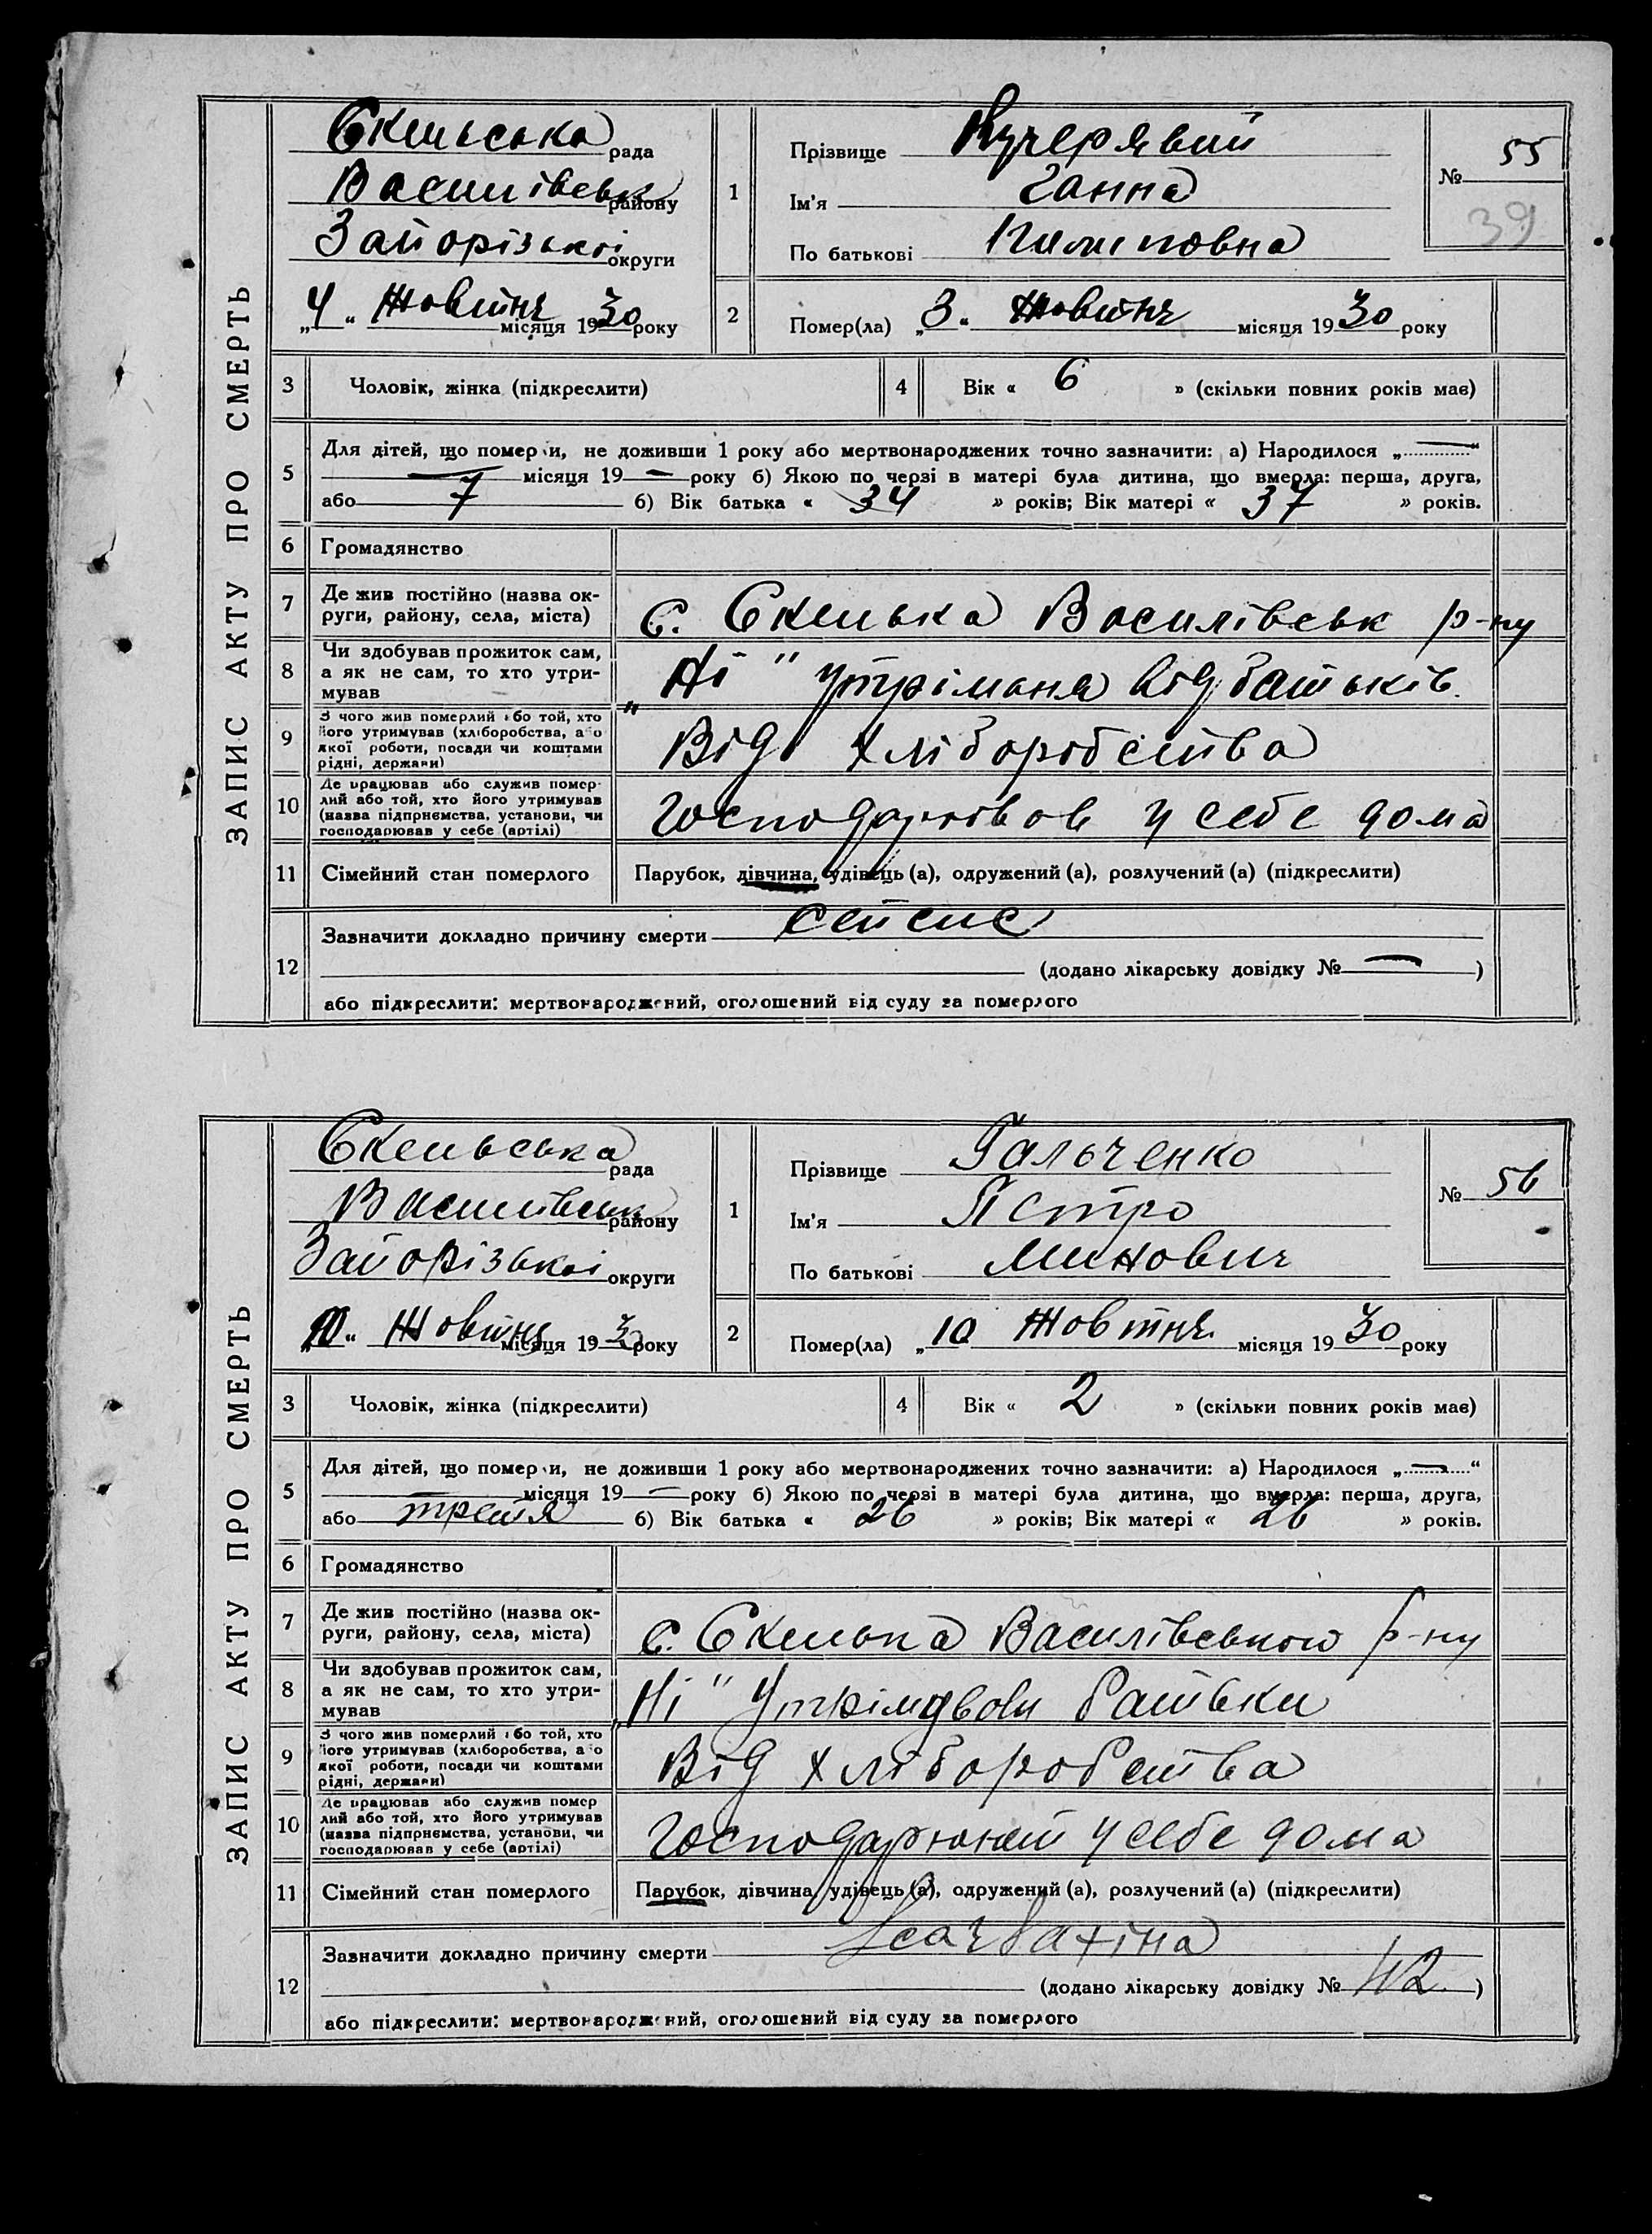 ЗАПИС АКТУ ПРО СМЕРТЬ
Скельська рада
Василівськ району
Запорізької округи
„4“ Жовтня місяця 1930 року
1
Прізвище Кучерявий
Ім'я Ганна
По батькові Пилиповна
№ 55
39
2
Помер(ла) „3“ Жовтня місяця 1930 року
3 Чоловік, жінка (підкреслити)
4 Вік « 6 » (скільки повних років має)
5
Для дітей, що померли, не доживши 1 року або мертвонароджених точно зазначити: а) Народилося „—“
— місяця 19 — року б) Якою по черзі в матері була дитина, що вмерла: перша, друга,
або 7 б) Вік батька « 34 » років; Вік матері « 37 » років.
6 Громадянство
7 Де жив постійно (назва ок-
руги, району, села, міста)
с. Скелька Василівськ р-ну
8 Чи здобував прожиток сам,
а як не сам, то хто утри-
мував
„Ні" утрімання від батьків.
9 З чого жив померлий або той, хто
його утримував (хліборобства, або
якої роботи, посади чи коштами
рідні, держави)
Від хліборобства
10 Де працював або служив помер-
лий або той, хто його утримував
(назва підприємства, установи, чи
господарював у себе (артілі)
Господарював у себе дома
11 Сімейний стан померлого
Парубок, дівчина, удівець (а), одружений (а), розлучений (а) (підкреслити)
12
Зазначити докладно причину смерти сепсис
(додано лікарську довідку № — )
або підкреслити: мертвонароджений, оголошений від суду за померлого
ЗАПИС АКТУ ПРО СМЕРТЬ
Скельська рада
Василівськ району
Запорізької округи
„10“ Жовтня місяця 1930 року
1
Прізвище Гальченко
Ім'я Петро
По батькові Минович
№ 56
2
Помер(ла) „10 Жовтня місяця 1930 року
3 Чоловік, жінка (підкреслити)
4 Вік « 2 » (скільки повних років має)
5
Для дітей, що померли, не доживши 1 року або мертвонароджених точно зазначити: а) Народилося „—“
місяця 19 — року б) Якою по черзі в матері була дитина, що вмерла: перша, друга,
або третя б) Вік батька « 26 » років; Вік матері « 26 » років.
6 Громадянство
7 Де жив постійно (назва ок-
руги, району, села, міста)
с. Скелька Василівського р-ну
8 Чи здобував прожиток сам,
а як не сам, то хто утри-
мував
„Ні" Утрімували батьки
9 З чого жив померлий або той, хто
його утримував (хліборобства, або
якої роботи, посади чи коштами
рідні, держави)
Від хліборобства
10 Де працював або служив помер
лий або той, хто його утримував
(назва підприємства, установи, чи
господарював у себе (артілі)
Господарюють у себе дома
11 Сімейний стан померлого
Парубок, дівчина, удівець (а), одружений (а), розлучений (а) (підкреслити)
12
Зазначити докладно причину смерти
(додано лікарську довідку № 42 )
або підкреслити: мертвонароджений, оголошений від суду за померлого